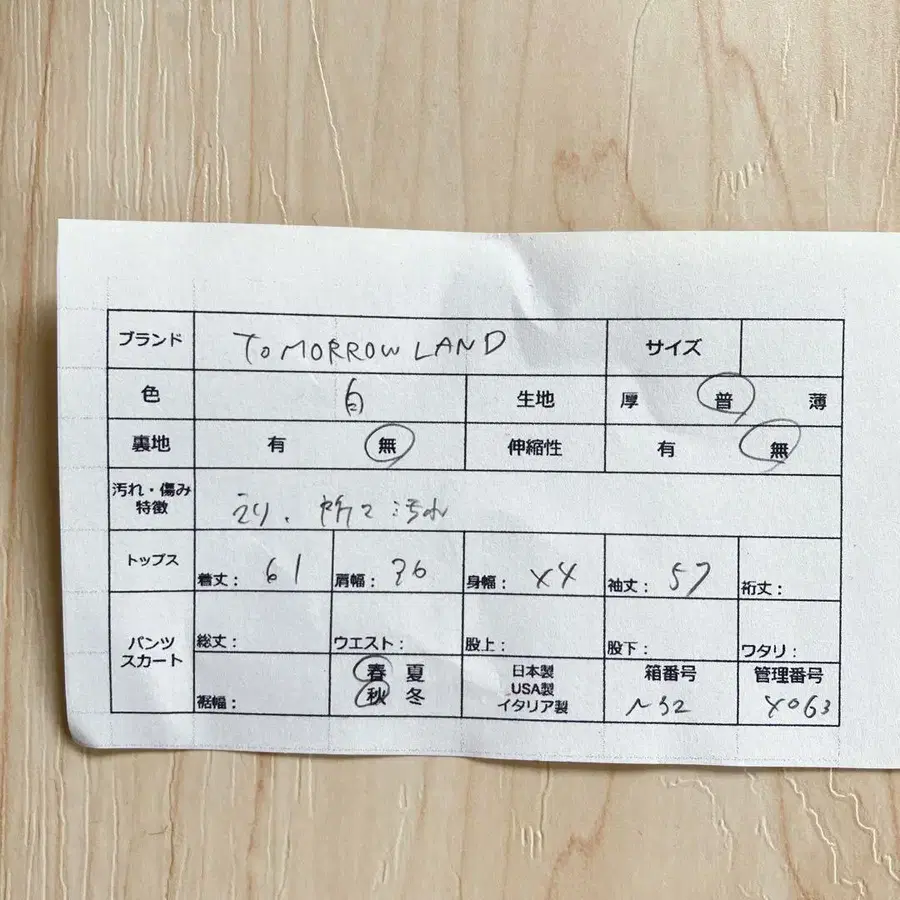 ブランド TOMORROWLAND サイズ
色 白 生地 厚 普 薄
裏地 有 無 伸縮性 有 無
汚れ・傷み
特徴 えり、所々汚れ
トップス 着丈： 61 肩幅： 36 身幅： 44 袖丈： 57 裄丈：
パンツ
スカート 総丈： ウエスト： 股上： 股下： ワタリ：
裾幅： 春 夏
秋 冬
日本製
USA製
イタリア製
箱番号
管理番号
4063